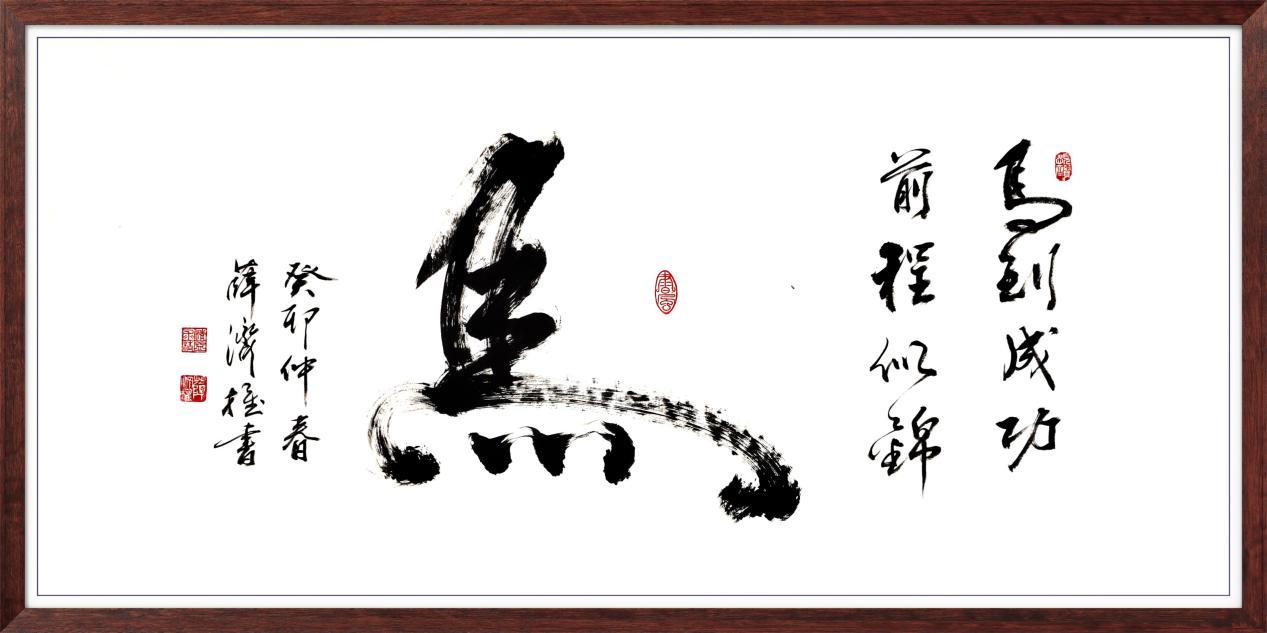 馬到成功
前程似錦
馬
癸卯仲春
薛濟權書